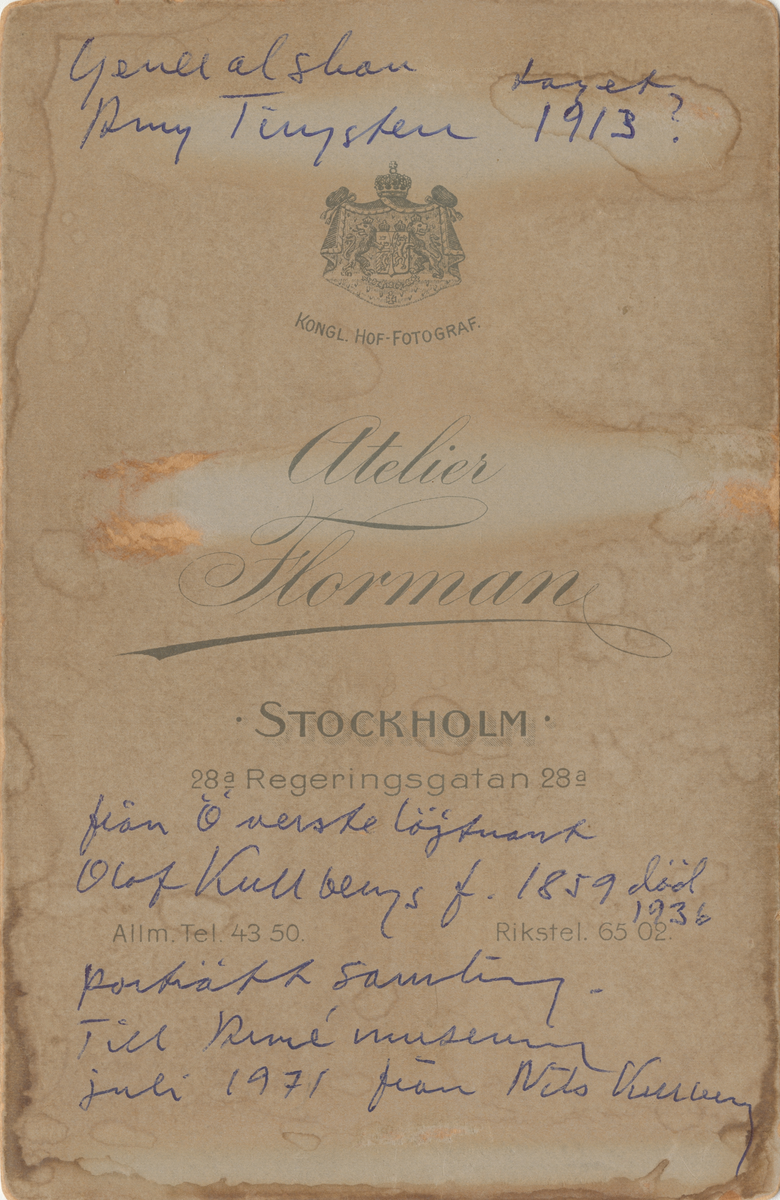 Generalskan
Amy Tingsten
taget
1913?
KONGL. HOF-FOTOGRAF.
Atelier
Florman
· STOCKHOLM ·
28ª Regeringsgatan 28ª
från Överstelöjtnant
Olof Kullbergs f. 1859 död
1936
Allm. Tel. 43 50.
Rikstel. 65 02.
porträtt samling.
Till Armé museum
juli 1971 från Nils Kullberg